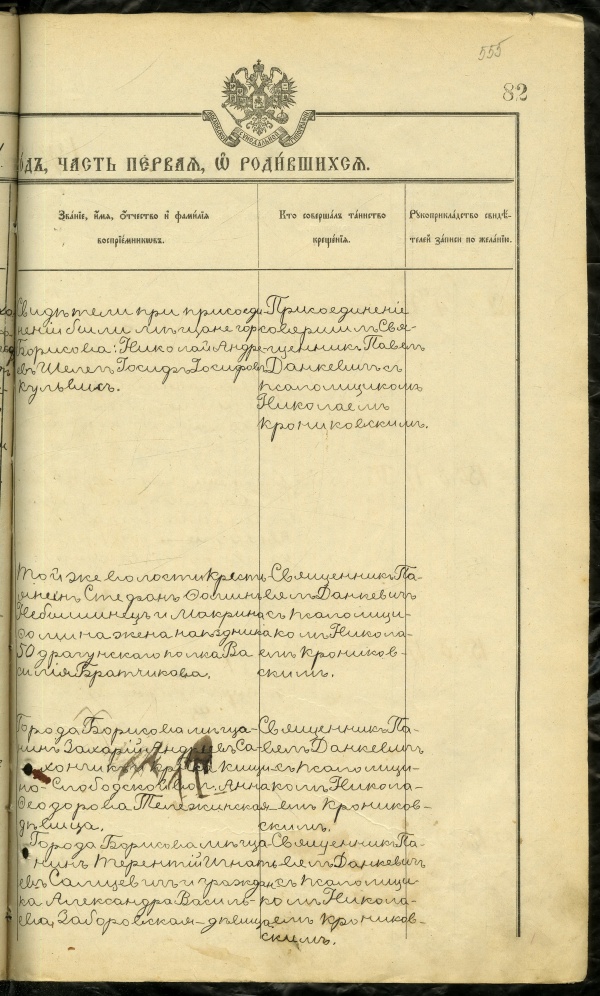 555
82
МОСКОВСКОЙ СѴНОДАЛЬНОЙ ТИПОГРАФІИ
ОДЪ, ЧАСТЬ ПЕ́РВАЯ, Ѡ РОДИ́ВШИХСЯ.
Зва́ніе, и́мя, о́тчество и фами́лія
воспріе́мниковъ.
Кто соверша́лъ та́инство
креще́нія.
Рꙋкоприкла́дство свидѣ́-
телей за́писи по жела́нію.
Свидѣтели при присоеди-
неніи были мѣщане гор.
Борисова: Николай Андре-
евъ Шелег Іосифъ Іосифовъ
Кульвисъ.
Присоединеніе
совершилъ Свя-
щенникъ Павелъ
Данкевичъ съ
псаломщикомъ
Николаемъ
Крониковскимъ.
той же волости крестья-
янинъ Стефанъ Фоминъ
Небышинецъ и Макрина
Фомина жена наѣздника
50 драгунскаго полка Ва-
силія Братчикова.
Священникъ Па-
велъ Данкевичъ
съ псаломщи-
комъ Никола-
емъ Кроников-
скимъ.
Города Борисова мѣща-
нинъ Захарій Андреевъ Са-
хончикъ и
но-Слободской вол. Анна
Феодорова Тележинская
дѣвица.
Священникъ Па-
велъ Данкевичъ
съ псаломщи-
комъ Никола-
емъ Кроников-
скимъ.
Города Борисова мѣща-
нинъ Терентій Игнать-
евъ Салцевичъ и граждан-
ка Александра Василь-
ева Заборовская-дѣвица
Священникъ Па-
велъ Данкевичъ
съ псаломщи-
комъ Никола-
емъ Кроников-
скимъ.